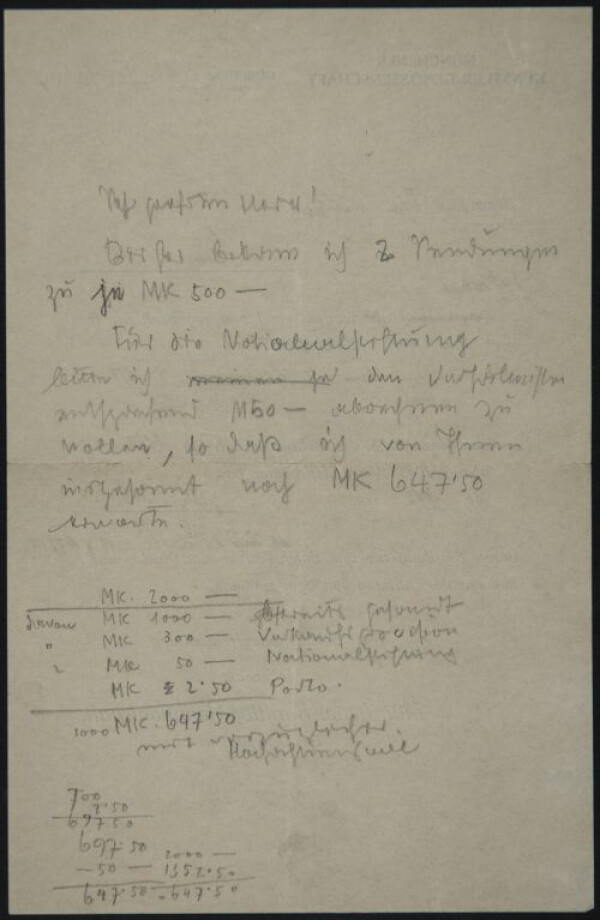 MÜNCHENER
KÜNSTLERGENOSSENSCHAFT
ich 2 Sendungen
zu je MK 500 —
Für die Nationalstiftung
bitte ich den
entsprechend M 50 — abrechnen zu
wollen, so daß ich von Ihnen
insgesamt noch MK 647'50
erwarte.
MK. 2000 —
davon MK 1000 — bereits gesandt
" MK 300 — Verkaufsprovision
" MK 50 — Nationalstiftung
MK 2'50 Porto.
1000 MK. 647'50
mit vorzüglicher
Hochachtungsvoll
700
2.50
697 50
697.50 2000 —
– 50 — 1352.50
647.50 647'50